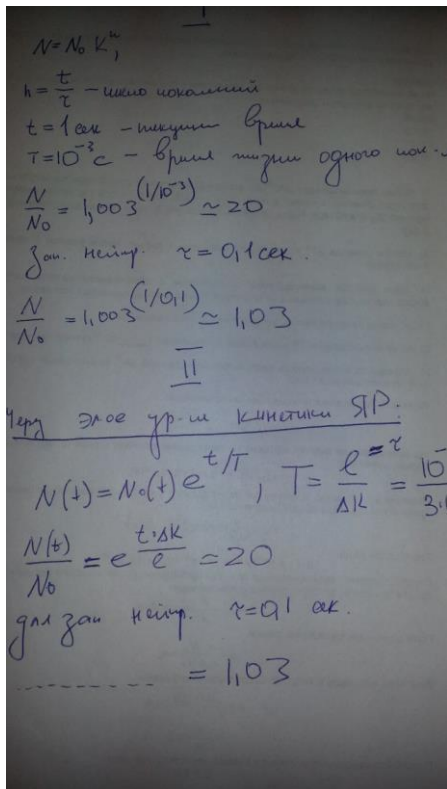 I
N = N₀ Kⁿ,
n = t/τ – число поколений
t = 1 сек – текущее время
T = 10⁻³ с – время жизни одного пок-
N/N₀ = 1,003^(1/10⁻³) ≃ 20
зап. нейтр. τ = 0,1 сек.
N/N₀ = 1,003^(1/0,1) ≃ 1,03
II
Через элое ур-ия кинетики ЯР:
N(t) = N₀(t) e^(t/T), T = ℓ^(=τ)/ΔK = 10⁻/3.
N(t)/N₀ = e^(t·ΔK/ℓ) = 20
для зап нейтр. τ = 0,1 сек.
............ = 1,03